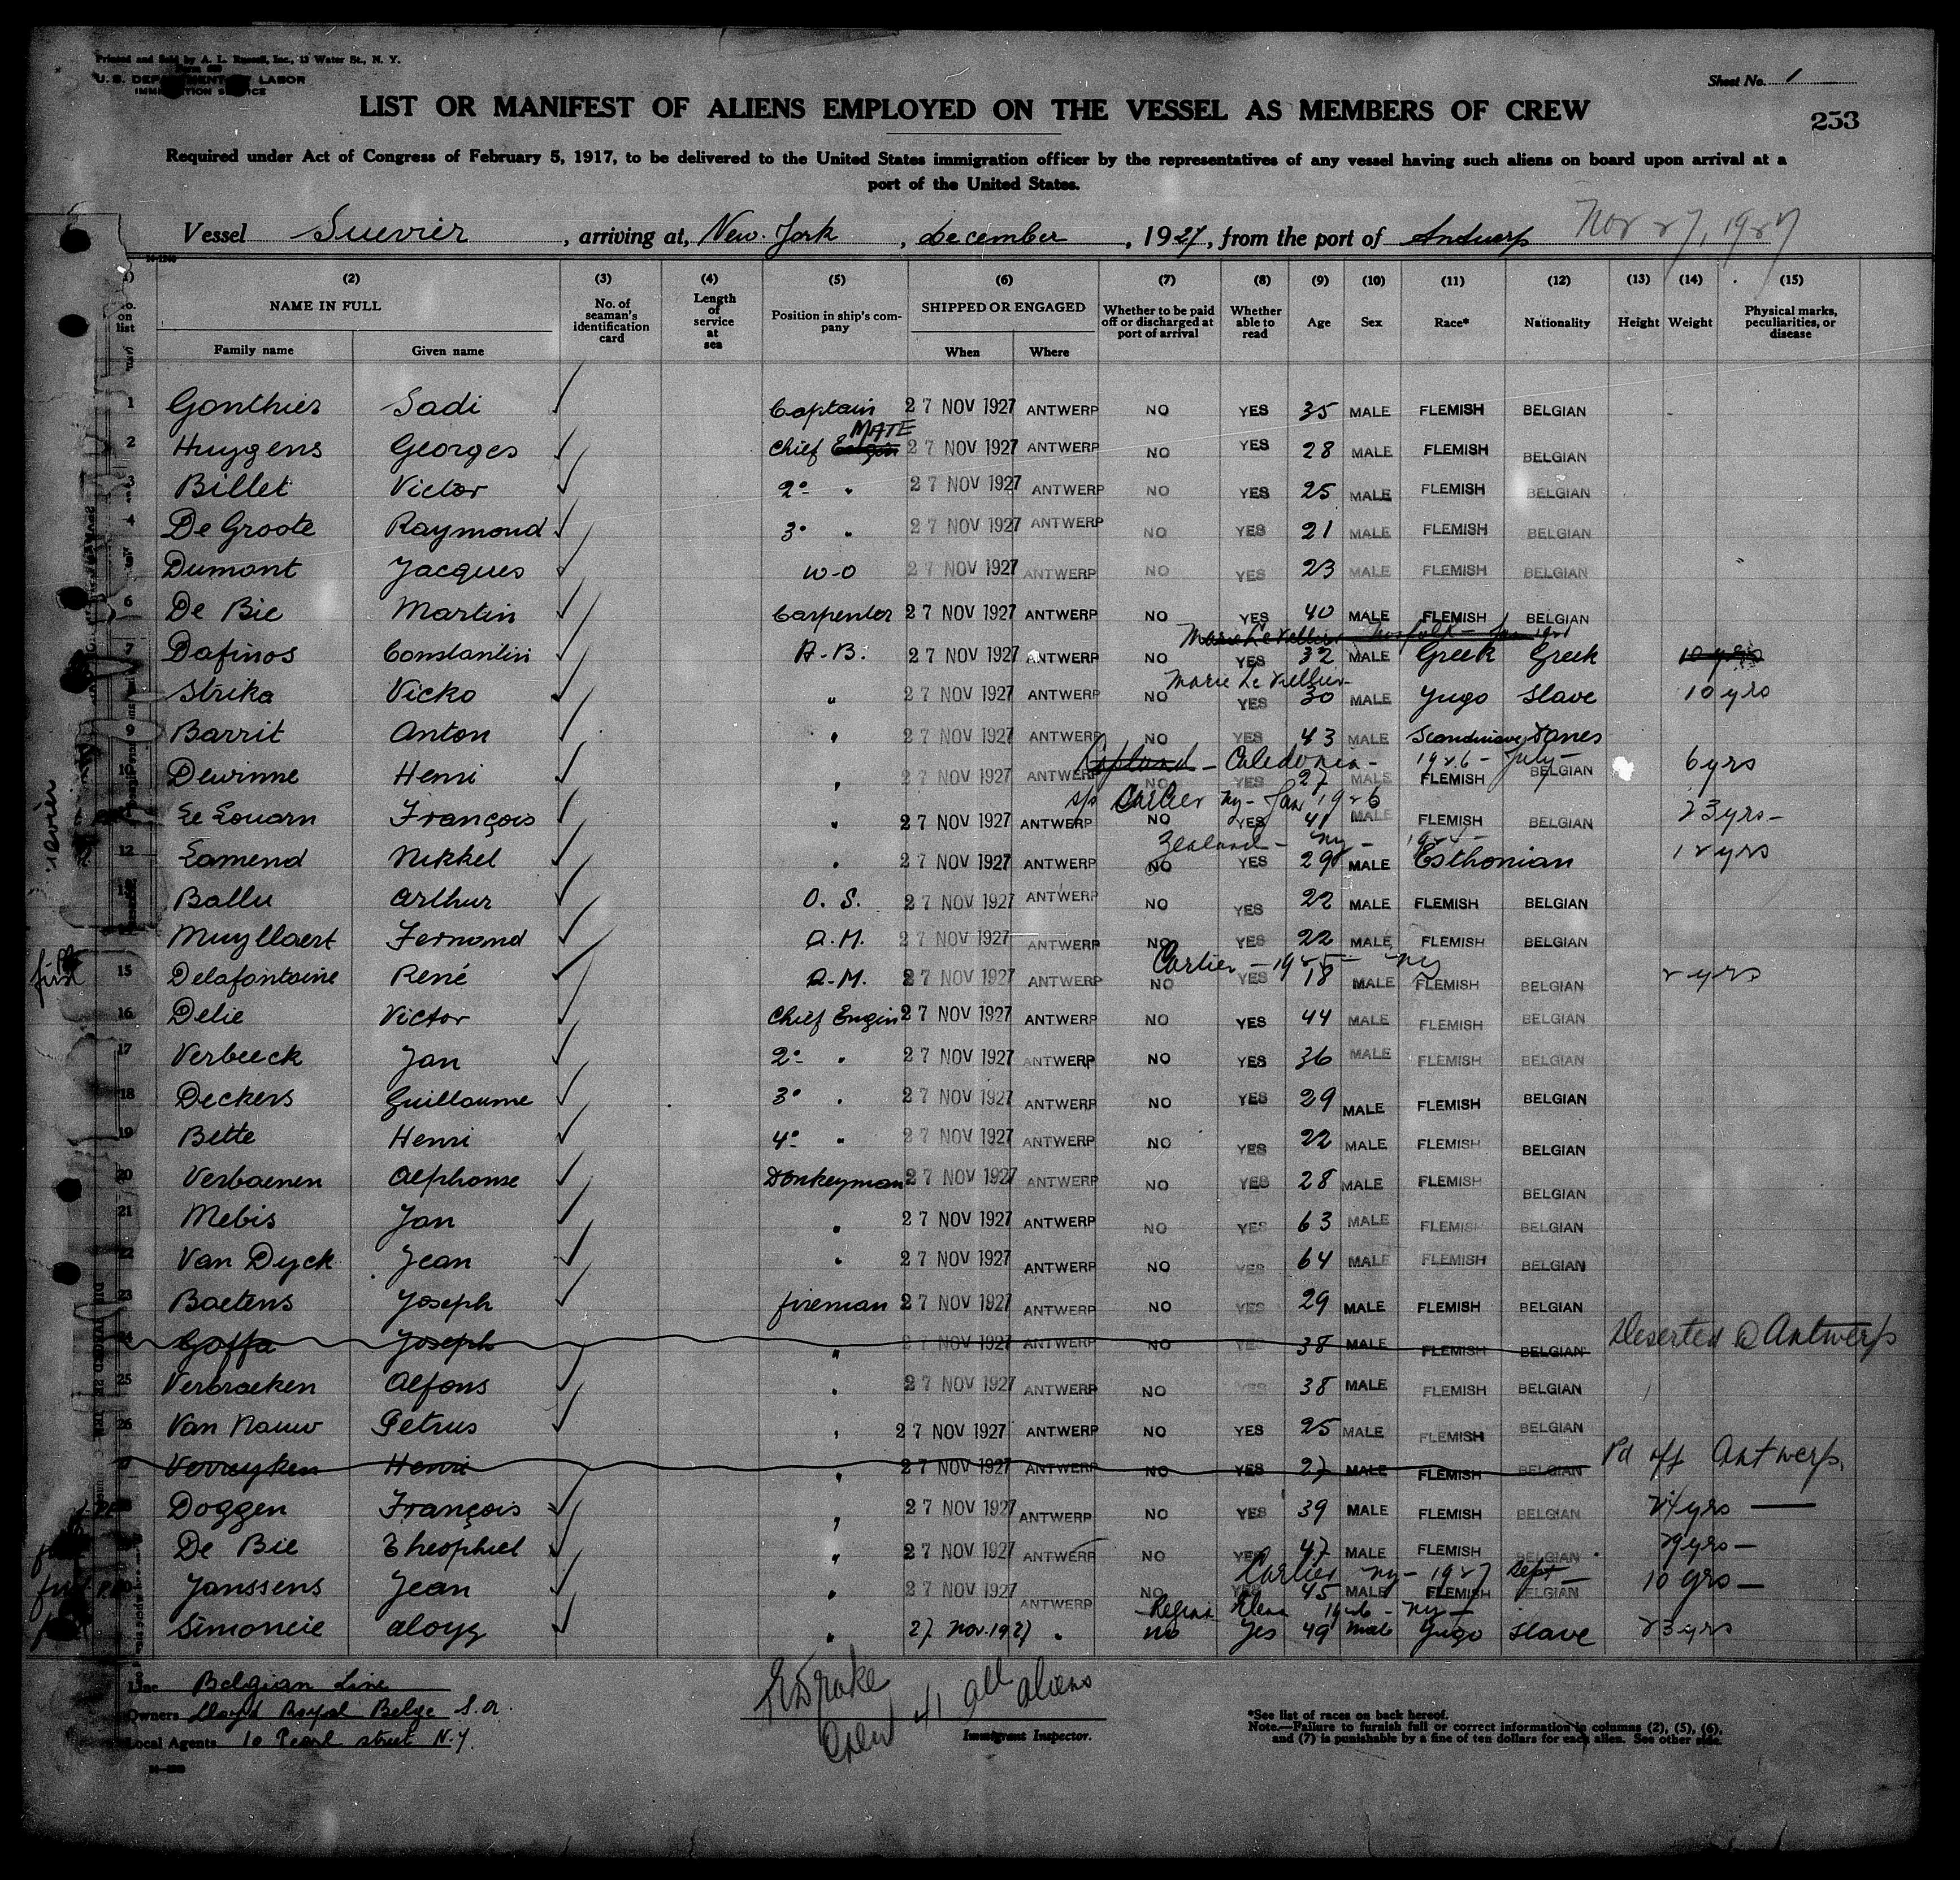 Printed and Sold by A. L. Russell, Inc., 13 Water St., N. Y.
U. S. DEPARTMENT OF LABOR
IMMIGRATION SERVICE
Sheet No. 1
LIST OR MANIFEST OF ALIENS EMPLOYED ON THE VESSEL AS MEMBERS OF CREW
253
Required under Act of Congress of February 5, 1917, to be delivered to the United States immigration officer by the representatives of any vessel having such aliens on board upon arrival at a
port of the United States.
Nov 27, 1927
Vessel Suevier, arriving at, New-York, december, 1927, from the port of Antwerp
(2) (3) (4) (5) (6) (7) (8) (9) (10) (11) (12) (13) (14) (15)
No. on list NAME IN FULL Family name Given name No. of seaman's identification card Length of service at sea Position in ship's company SHIPPED OR ENGAGED When Where Whether to be paid off or discharged at port of arrival Whether able to read Age Sex Race* Nationality Height Weight Physical marks, peculiarities, or disease
1 Gonthier Sadi Captain 27 NOV 1927 ANTWERP NO YES 35 MALE FLEMISH BELGIAN
MATE
2 Huygens Georges Chief Engin 27 NOV 1927 ANTWERP NO YES 28 MALE FLEMISH BELGIAN
3 Billet Victor 2° " 27 NOV 1927 ANTWERP NO YES 25 MALE FLEMISH BELGIAN
4 De Groote Raymond 3° " 27 NOV 1927 ANTWERP NO YES 21 MALE FLEMISH BELGIAN
5 Dumont Jacques W-O 27 NOV 1927 ANTWERP NO YES 23 MALE FLEMISH BELGIAN
6 De Bie Martin Carpenter 27 NOV 1927 ANTWERP NO YES 40 MALE FLEMISH BELGIAN
Norfolk
7 Dafinos Constantin A.B. 27 NOV 1927 ANTWERP NO YES 32 MALE Greek Greek 10 yrs
Marie Le
Strika Vicko " 27 NOV 1927 ANTWERP NO YES 30 MALE Yugo Slave 10 yrs
9 Barrit Anton " 27 NOV 1927 ANTWERP NO YES 43 MALE Scandinav Danes
Caledonia - 1926 - July -
10 Dewinne Henri " 27 NOV 1927 ANTWERP NO YES 27 MALE FLEMISH BELGIAN 6 yrs
s/s Carlier ny - Jan 1926
Le Louarn François " 27 NOV 1927 ANTWERP NO YES 41 MALE FLEMISH BELGIAN 23 yrs -
Zealand - ny -
12 Lamend Nikkel " 27 NOV 1927 ANTWERP NO YES 29 MALE Esthonian 12 yrs
13 Ballu Arthur O. S. 27 NOV 1927 ANTWERP NO YES 22 MALE FLEMISH BELGIAN
Muyllaert Fernand A.M. 27 NOV 1927 ANTWERP NO YES 22 MALE FLEMISH BELGIAN
Carlier - 1925 - ny
first 15 Delafontaine René A.M. 27 NOV 1927 ANTWERP NO YES 18 MALE FLEMISH BELGIAN 2 yrs
16 Delie Victor Chief Engin 27 NOV 1927 ANTWERP NO YES 44 MALE FLEMISH BELGIAN
17 Verbeeck Jan 2° " 27 NOV 1927 ANTWERP NO YES 36 MALE FLEMISH BELGIAN
18 Deckers Guillaume 3° " 27 NOV 1927 ANTWERP NO YES 29 MALE FLEMISH BELGIAN
19 Bette Henri 4° " 27 NOV 1927 ANTWERP NO YES 22 MALE FLEMISH BELGIAN
20 Verbaenen Alphonse Donkeyman 27 NOV 1927 ANTWERP NO YES 28 MALE FLEMISH BELGIAN
21 Mebis Jan " 27 NOV 1927 ANTWERP NO YES 63 MALE FLEMISH BELGIAN
22 Van Dyck Jean " 27 NOV 1927 ANTWERP NO YES 64 MALE FLEMISH BELGIAN
23 Baetens Joseph fireman 27 NOV 1927 ANTWERP NO YES 29 MALE FLEMISH BELGIAN
24 Goffa Joseph " 27 NOV 1927 ANTWERP NO YES 38 MALE FLEMISH BELGIAN Deserted @ Antwerp
25 Verbraeken Alfons " 27 NOV 1927 ANTWERP NO YES 38 MALE FLEMISH BELGIAN
26 Van Nauw Petrus " 27 NOV 1927 ANTWERP NO YES 25 MALE FLEMISH BELGIAN
Verreyken Henri " 27 NOV 1927 ANTWERP NO YES 27 MALE FLEMISH BELGIAN Pd off Antwerp.
Doggen François " 27 NOV 1927 ANTWERP NO YES 39 MALE FLEMISH BELGIAN 24 yrs
De Bie Theophiel " 27 NOV 1927 ANTWERP NO YES 47 MALE FLEMISH BELGIAN 29 yrs -
Carlier ny - 1927 Sept -
Janssens Jean " 27 NOV 1927 ANTWERP NO YES 45 MALE FLEMISH BELGIAN 10 yrs -
Regina Elena 1926 - ny -
Simoncie Aloyz " 27 Nov. 1927 " no Yes 49 Male Yugo Slave 23 yrs
Line Belgian Line
Owners Lloyd Royal Belge S.A.
Local Agents 10 Pearl street N.Y.
Drake
Crew 41 all aliens
Immigrant Inspector.
*See list of races on back hereof.
Note.—Failure to furnish full or correct information in columns (2), (5), (6),
and (7) is punishable by a fine of ten dollars for each alien. See other side.